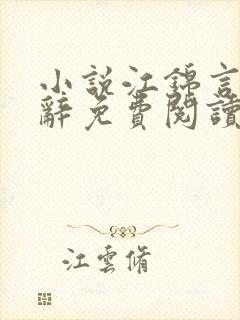 小說江錦言
辭免費閱讀
江雲脩